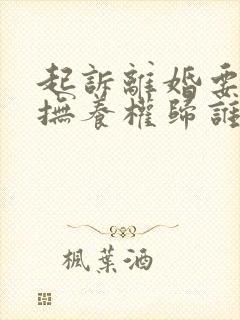 起訴離婚要
撫養權歸誰
楓葉酒